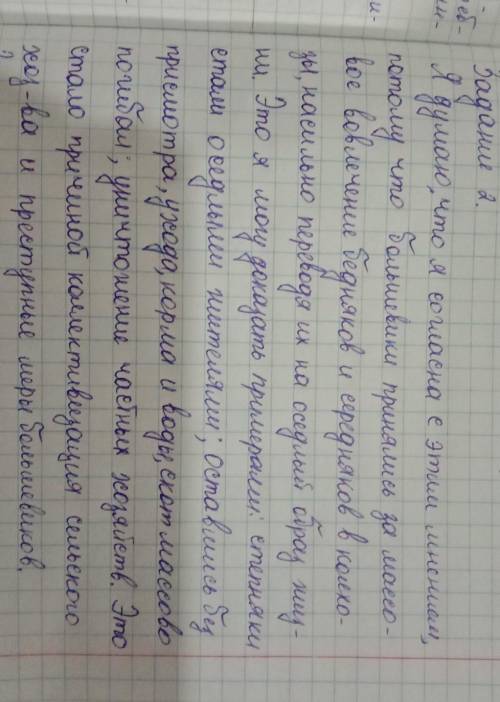 -
реб-
им-
и-
Задание 2.
Я думаю, что я согласна с этим мнением,
потому что большевики принялись за массо-
вое вовлечение бедняков и середняков в колхо-
зы, насильно переводя их на оседлый образ жиз-
ни. Это я могу доказать примерами: степняки
стали оседлыми жителями; оставшись без
присмотра, ухода, корма и воды, скот массово
погибал; уничтожение частных хозяйств. Это
стало причиной колективизация сельского
хоз-ва и преступные меры большевиков.